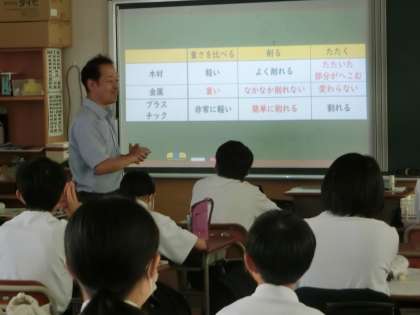 重さを比べる 削る たたく
木材 軽い よく削れる たたいた
部分がへこむ
金属 重い なかなか削れない 変わらない
プラス
チック 非常に軽い 簡単に削れる 割れる